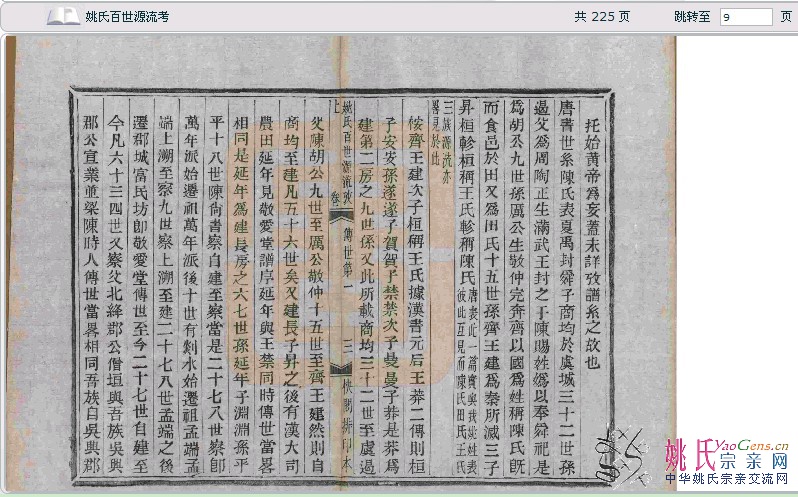 姚氏百世源流考
共 225 页
跳转至 9 页
托始黃帝為妄蓋未詳攷譜系之故也
唐書世系陳氏表夏禹封舜子商均於虞城三十二世孫
遏父為周陶正生滿武王封之于陳賜姓媯以奉舜祀是
為胡公九世孫厲公生敬仲完奔齊以國為姓稱陳氏既
而食邑於田又為田氏十五世孫齊王建為秦所滅三子
昇桓軫桓稱王氏軫稱陳氏唐表此一篇實與我姚姓表
彼此互見而陳氏田氏王氏
三族源流亦
畧見於此
按齊王建次子桓稱王氏據漢書元后王莽二傳則桓
子安安孫遂遂子賀賀子禁禁次子曼曼子莽是莽為
建第二房之九世孫又此所載商均三十二世至虞遏
姚氏百世源流攷 卷上 傳世第一 三 快閣排印本
父陳胡公九世至厲公敬仲十五世至齊王建然則自
商均至建凡五十六世矣又建長子昇之後有漢大司
農田延年見敬愛堂譜序延年與王禁同時傳世當畧
相同是延年為建長房之六七世孫延年子淵淵孫平
平十八世陳尚書察自建至察當是二十七八世察卽
萬年派始遷祖萬年派後十世有剡水始遷祖孟端孟
端上溯至察九世察上溯至建二十七八世孟端之後
遷郡城富民坊卽敬愛堂傳世至今二十七世自建至
今凡六十三四世又察父北絳郡公僧垣與吾族吳興
郡公宣業並梁陳時人傳世當畧相同吾族自吳興郡
姚氏 YaoGens.cn 宗亲网
中华姚氏宗亲交流网